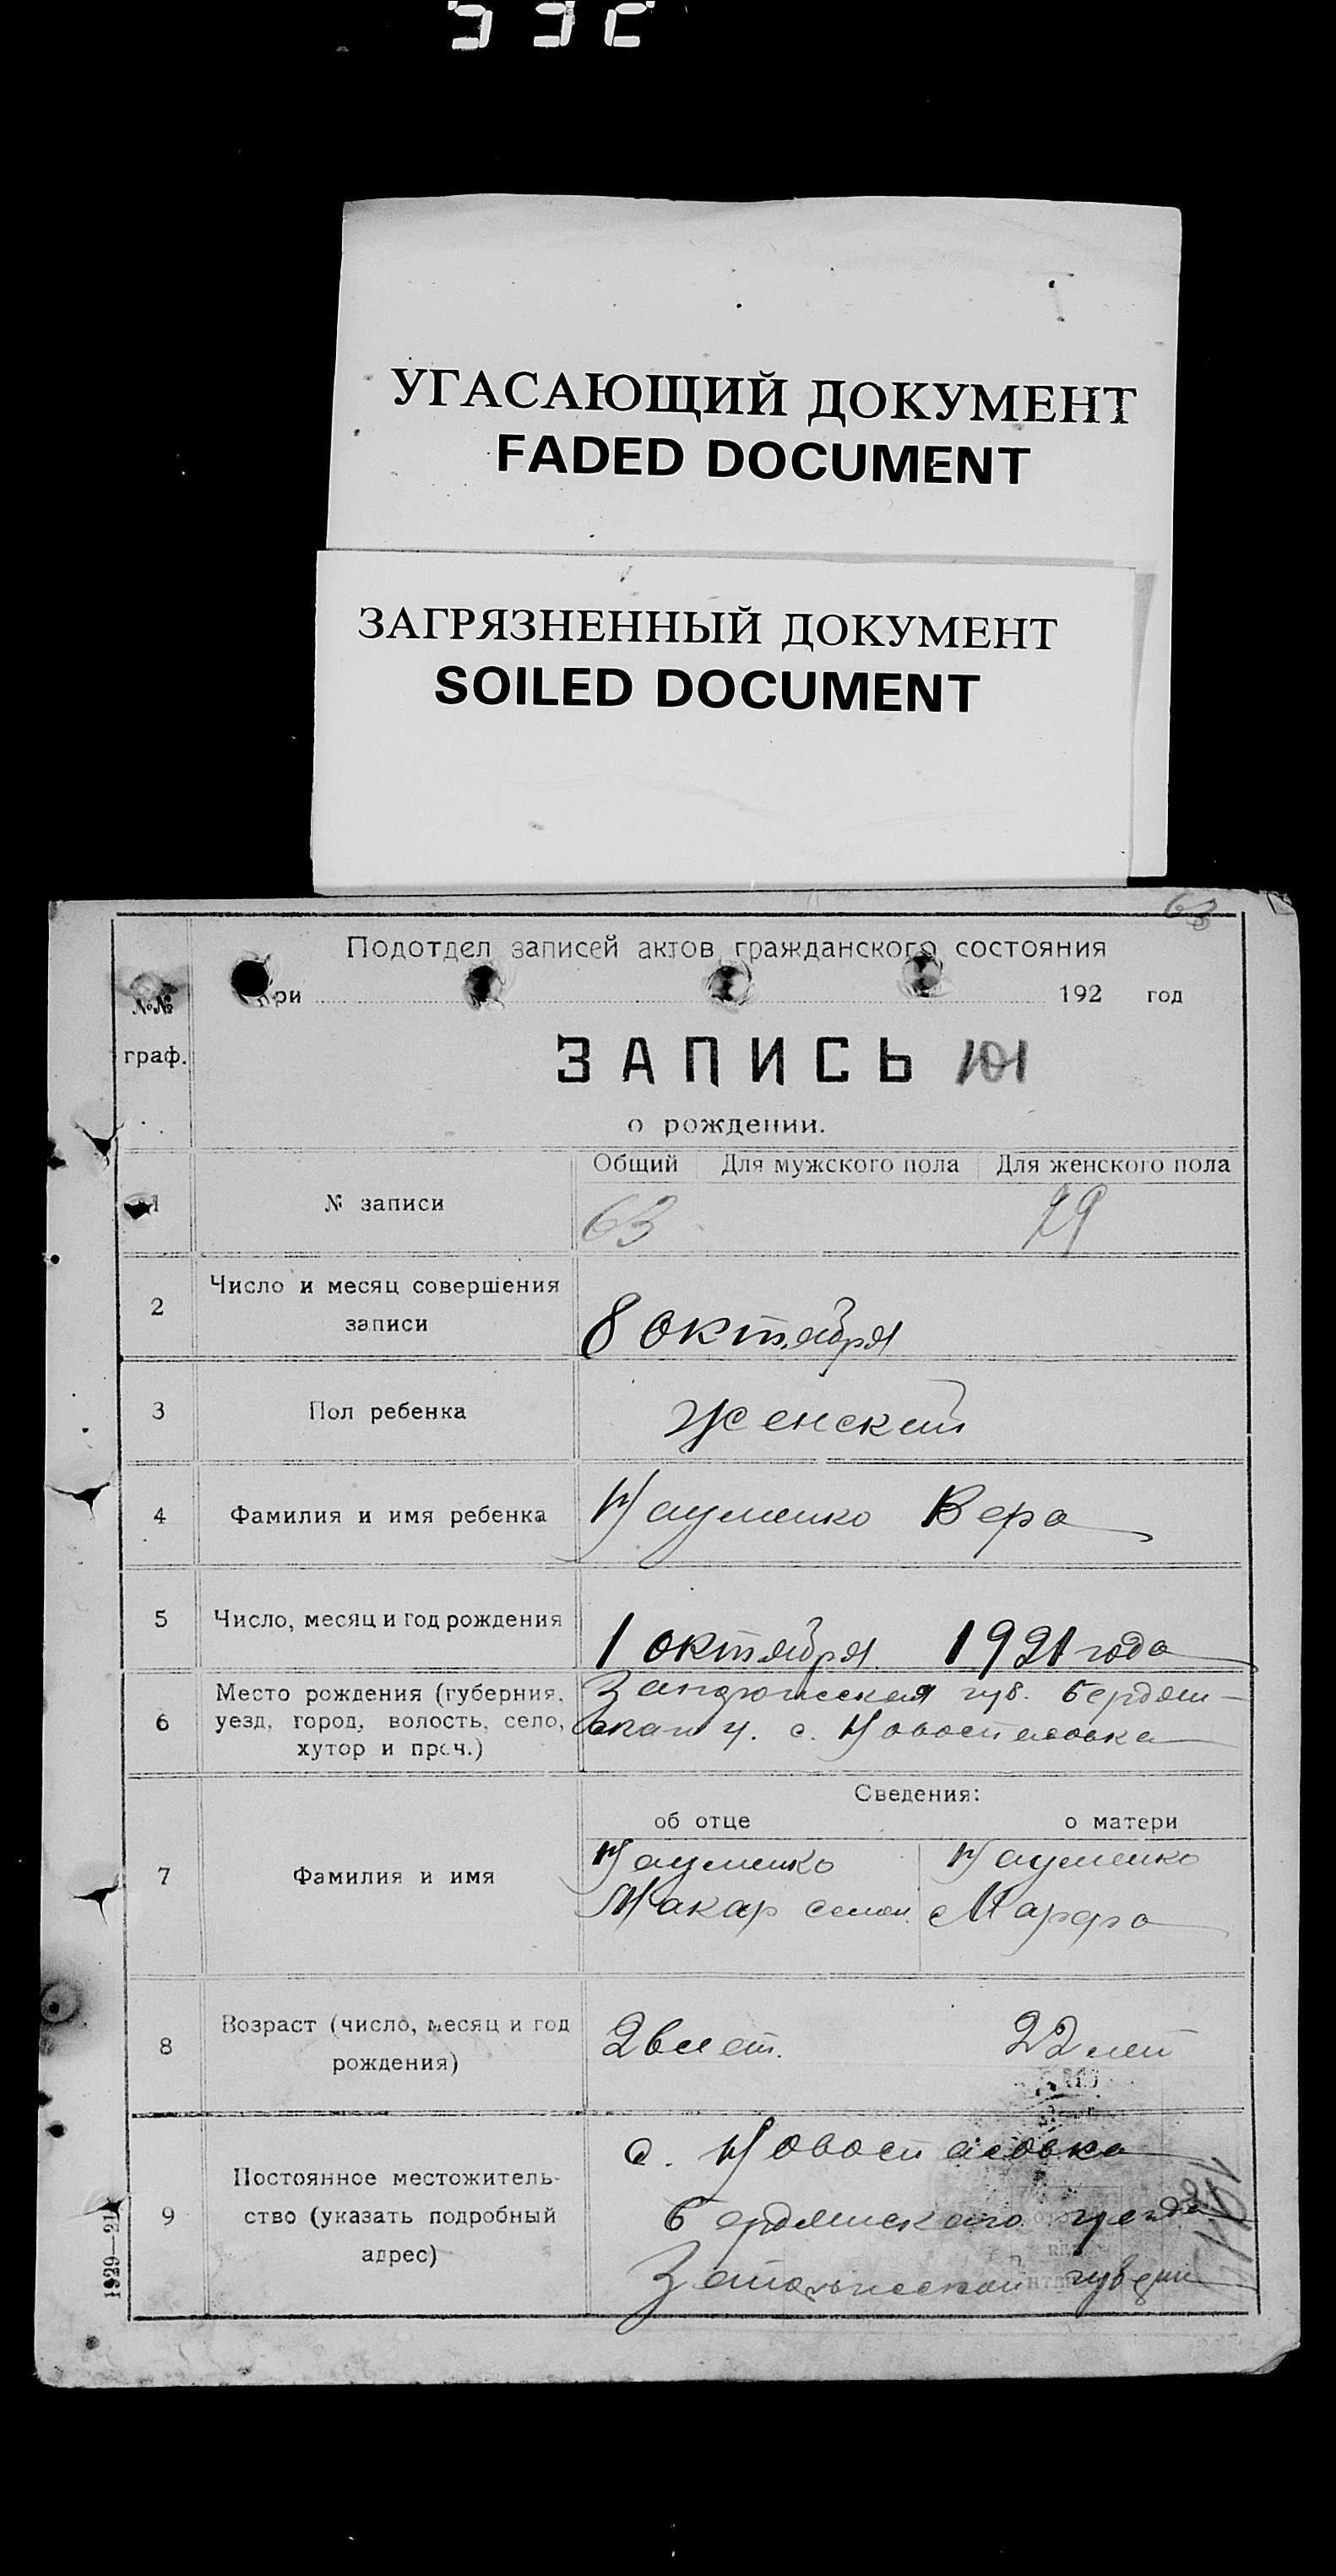 УГАСАЮЩИЙ ДОКУМЕНТ
FADED DOCUMENT
ЗАГРЯЗНЕННЫЙ ДОКУМЕНТ
SOILED DOCUMENT
63
Подотдел записей актов гражданского состояния
при 192 год
№№
граф.
ЗАПИСЬ 101
о рождении.
Общий Для мужского пола Для женского пола
1 № записи 63 29
2 Число и месяц совершения
записи
8 октября
3 Пол ребенка Женский
4 Фамилия и имя ребенка Науменко Вера
5 Число, месяц и год рождения 1 октября 1921 года
6 Место рождения (губерния,
уезд, город, волость, село,
хутор и проч.)
губ. Бердян-
у. с. Новоспасовка
Сведения:
об отце о матери
7 Фамилия и имя
Науменко Науменко
Макар Семен. Марфа
8 Возраст (число, месяц и год
рождения)
лет. 22 лет
9 Постоянное местожитель-
ство (указать подробный
адрес)
с. Новоспасовка
Бердянского уезда
1929—21